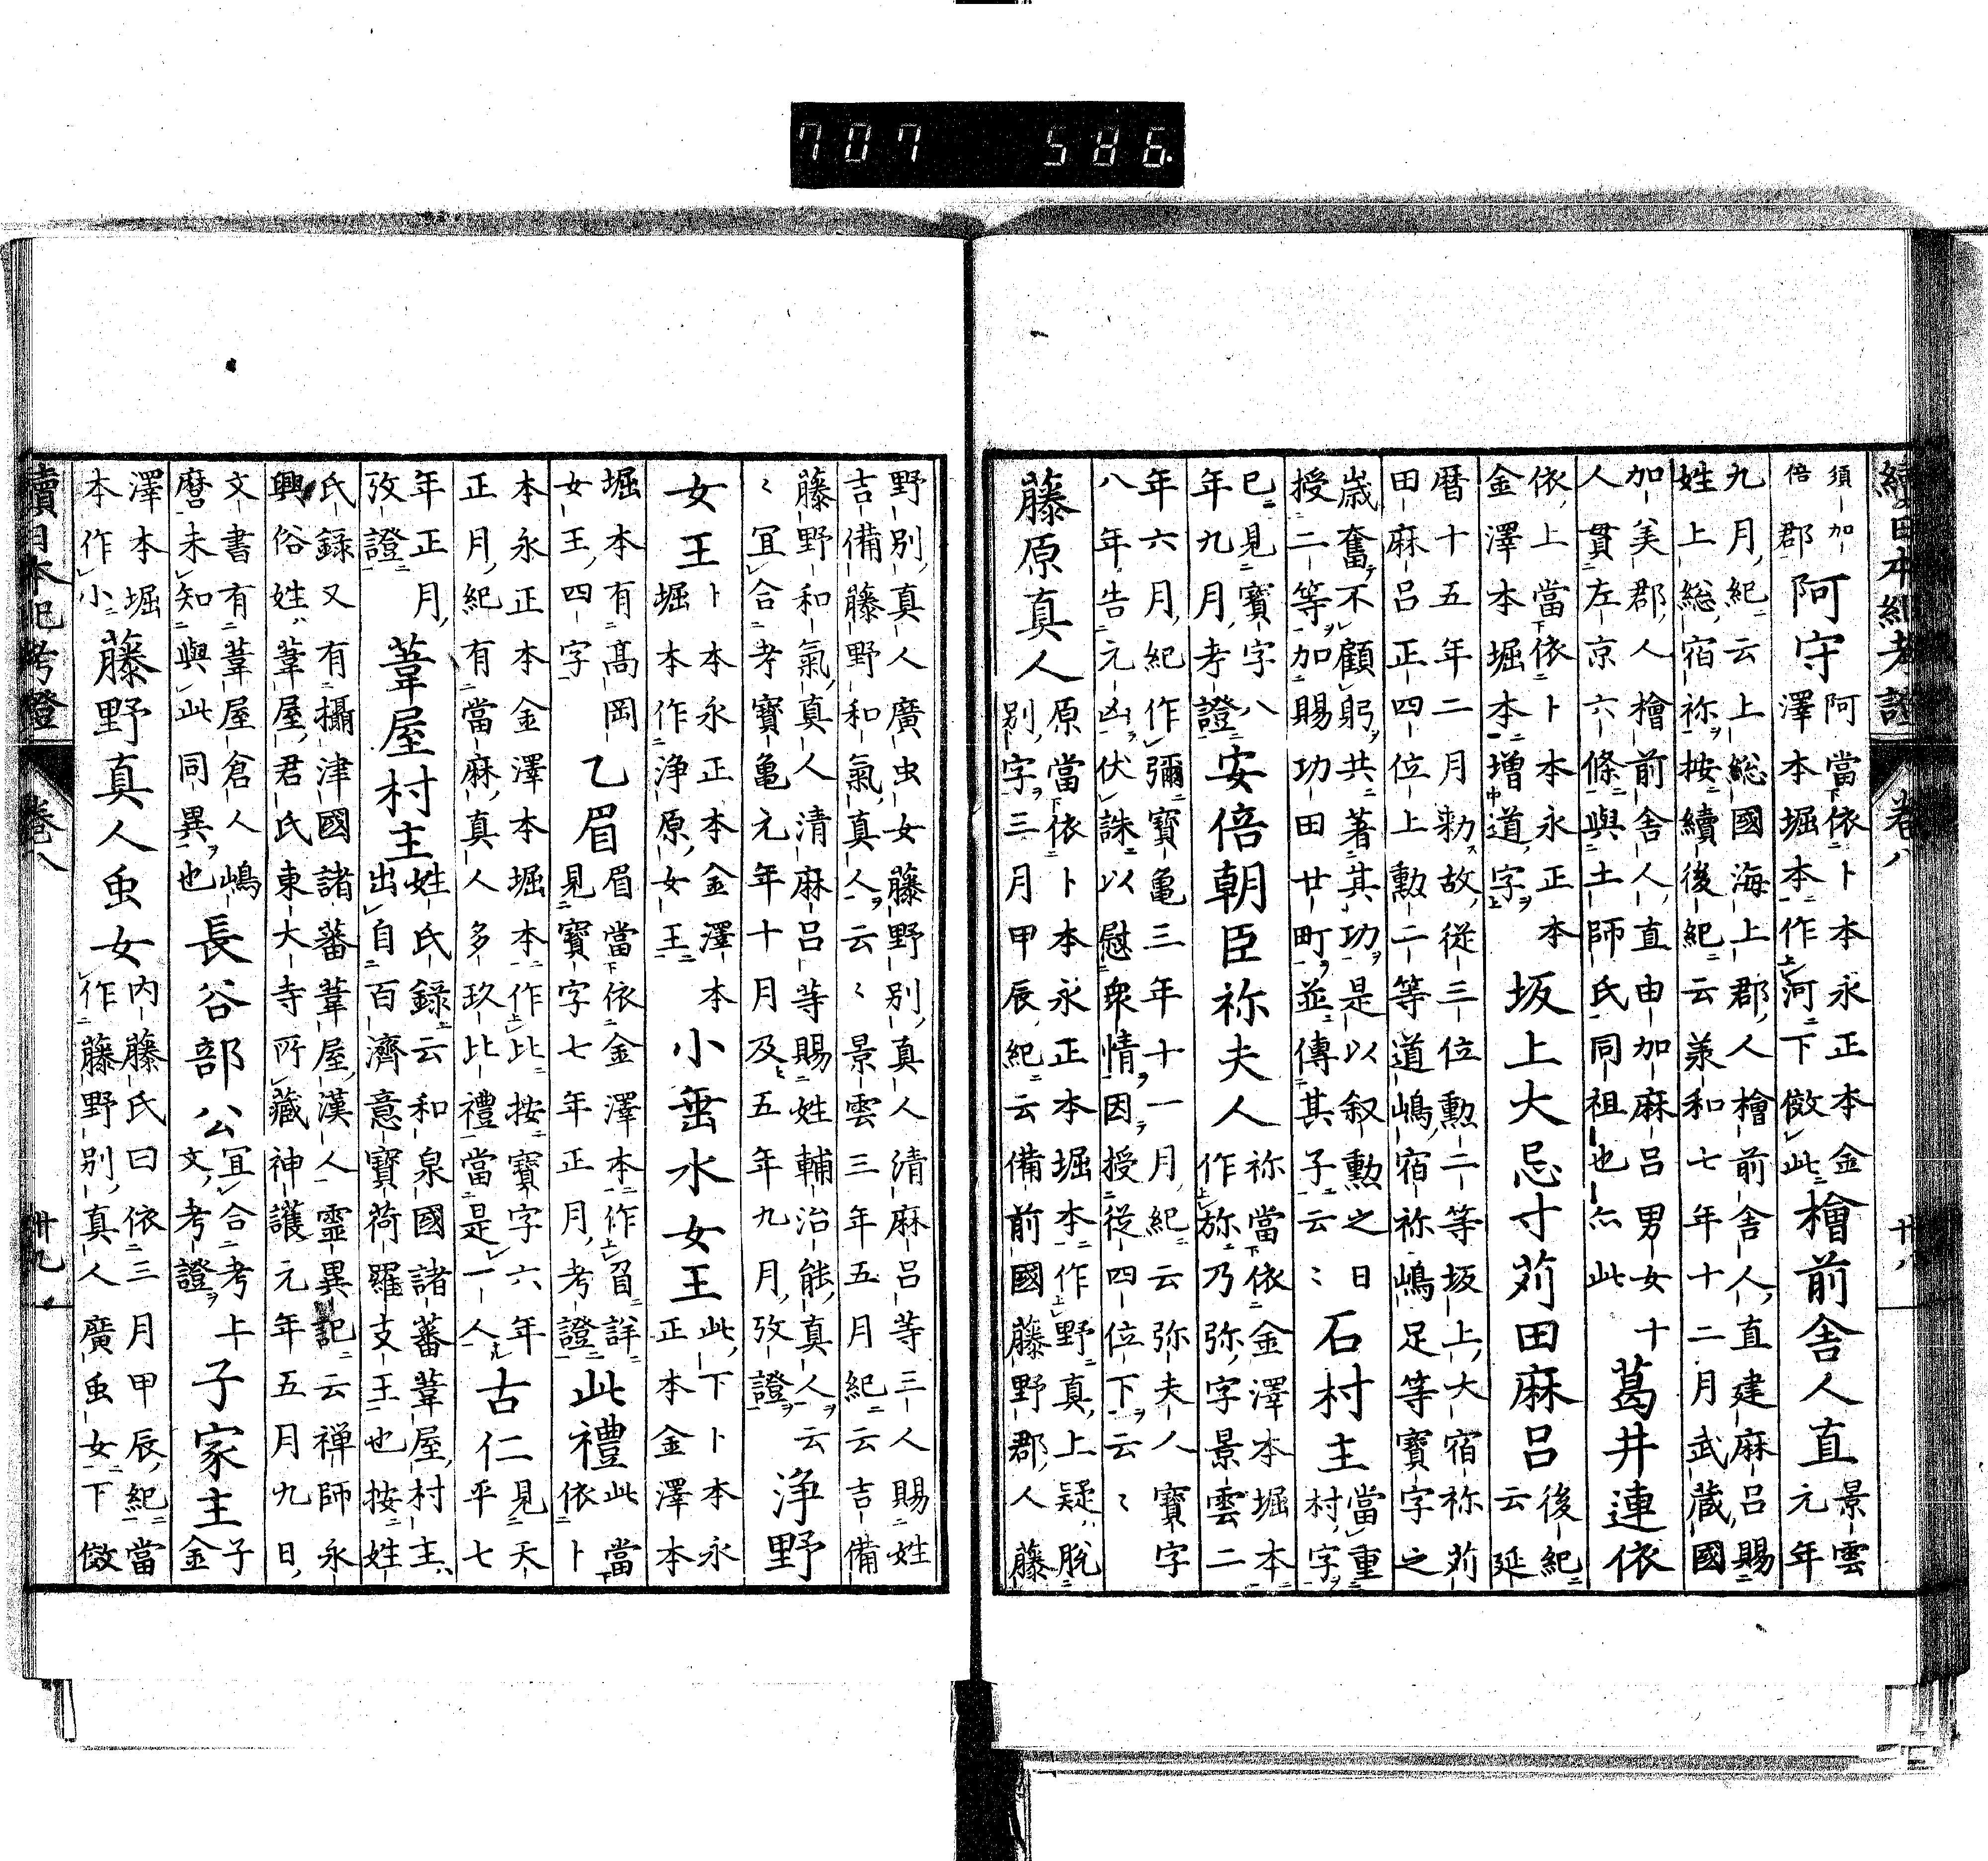 707 586.
續日本紀考證 卷八
須加
倍郡 阿守 阿當依卜本永正本金
澤本堀本作河下倣此 檜前舍人直 景雲
元年
九月紀云上総國海上郡人檜前舍人直建麻呂賜
姓上総宿祢按續後紀云羕和七年十二月武藏國
加美郡人檜前舍人直由加麻呂男女十
人貫左京六條與土師氏同祖也亦此 葛井連依
依上當依卜本永正本
金澤本堀本增道字 坂上大忌寸苅田麻呂 後紀
云延
暦十五年二月勅故從三位勲二等坂上大宿祢苅
田麻呂正四位上勲二等道嶋宿祢嶋足等寶字之
歳奮不顧躬共著其功是以叙勲之日
授二等加賜功田廿町並傳其子云〻 石村主 當重
村字
已見寶字八
年九月考證 安倍朝臣祢夫人 祢當依金澤本堀本
作旀乃弥字景雲二
年六月紀作彌寶亀三年十一月紀云弥夫人寶字
八年告元凶伏誅以慰衆情因授從四位下云〻
藤原真人 原當依卜本永正本堀本作野真上疑脫
別字三月甲辰紀云備前國藤野郡人藤
野別真人廣虫女藤野別真人清麻呂等三人賜姓
吉備藤野和氣真人云〻景雲三年五月紀云吉備
藤野和氣真人清麻呂等賜姓輔治能真人云
〻冝合考寶亀元年十月及五年九月攷證 浄野
女王 卜本永正本金澤本
堀本作浄原女王 小垂水女王 此下卜本永
正本金澤本
堀本有髙岡
女王四字 乙眉 眉當依金澤本作䀠詳
見寶字七年正月考證 此禮 此當
依卜
本永正本金澤本堀本作比按寶字六年
正月紀有當麻真人多玖比禮當是一人 古仁 見天
平七
年正月
攷證 葦屋村主 姓氏録云和泉國諸蕃葦屋村主
出自百濟意寶荷羅支王也按姓
氏録又有攝津國諸蕃葦屋漢人靈異記云禅師永
興俗姓葦屋君氏東大寺所藏神護元年五月九日
文書有葦屋倉人嶋
麿未知與此同異也 長谷部公 冝合考上
文考證 子家主 子
金
澤本堀
本作小 藤野真人虫女 内藤氏曰依三月甲辰紀當
作藤野別真人廣虫女下倣
續日本紀考證 卷八 廿九